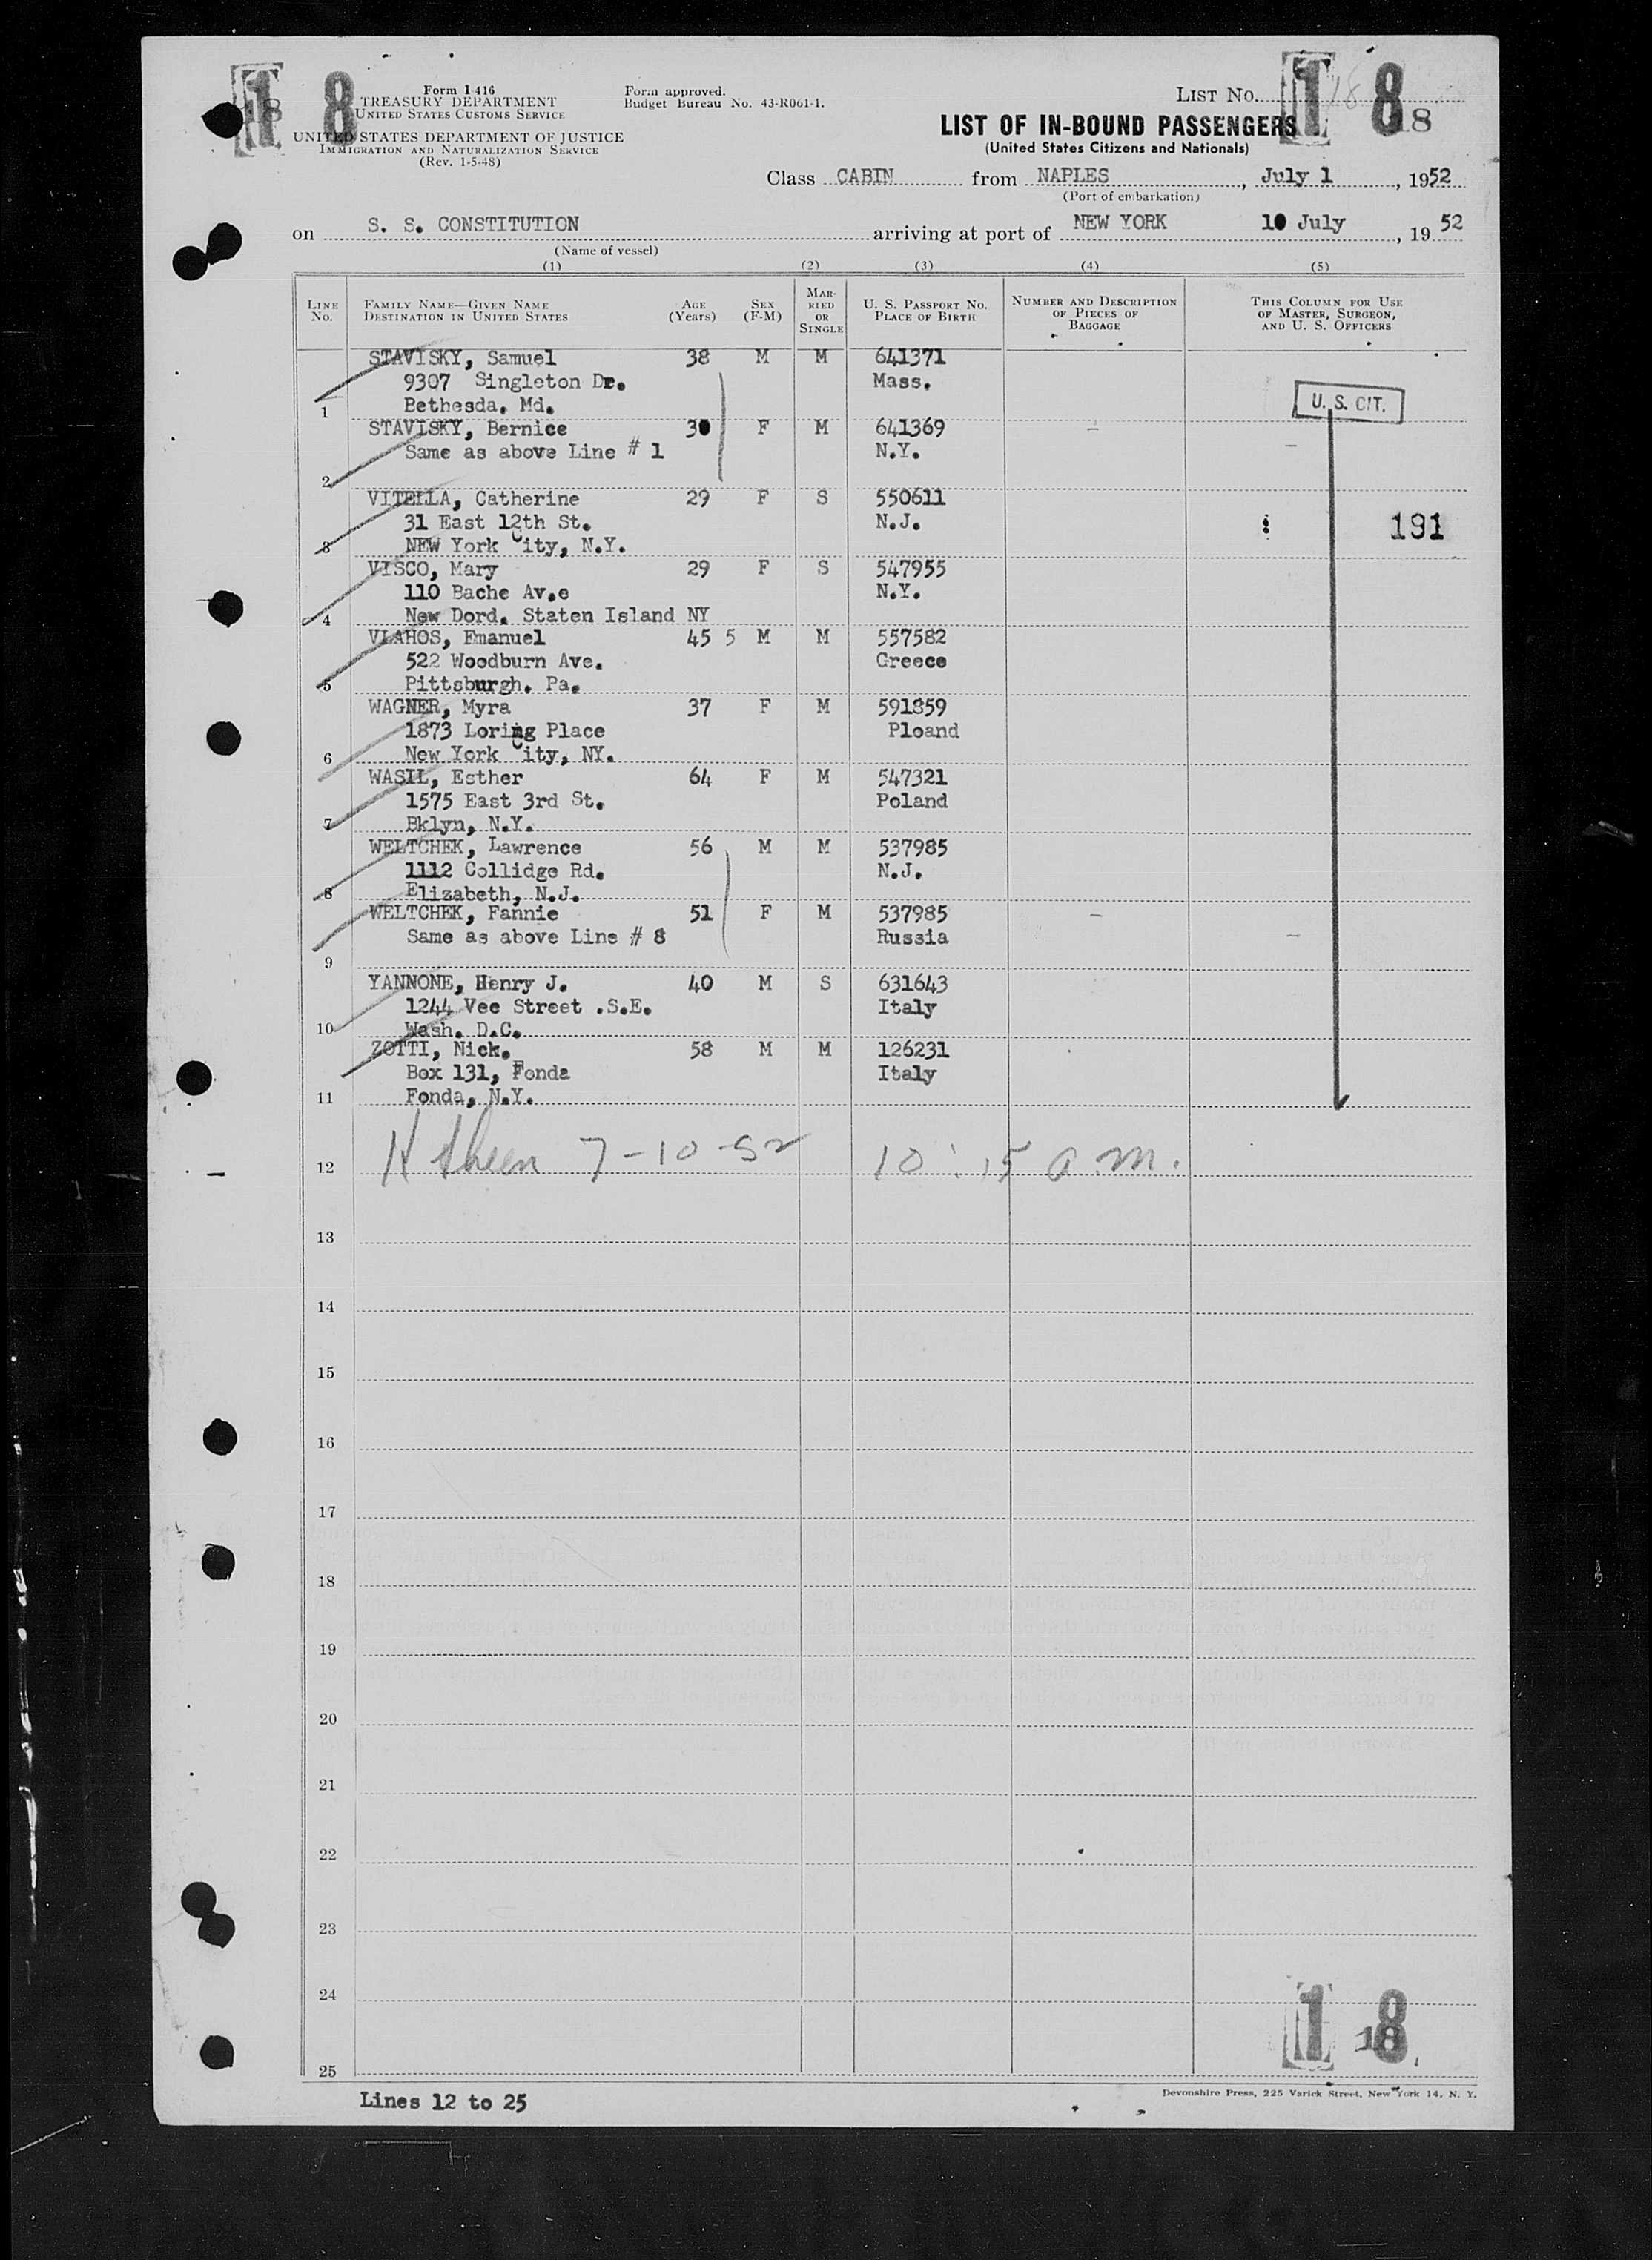 18
18
Form I-416
TREASURY DEPARTMENT
UNITED STATES CUSTOMS SERVICE
UNITED STATES DEPARTMENT OF JUSTICE
IMMIGRATION AND NATURALIZATION SERVICE
(Rev. 1-5-48)
Form approved.
Budget Bureau No. 43-R061-1.
LIST NO. 18
18
18
LIST OF IN-BOUND PASSENGERS
(United States Citizens and Nationals)
Class CABIN from NAPLES, July 1, 1952
(Port of embarkation)
on S. S. CONSTITUTION arriving at port of NEW YORK 10 July, 19 52
(Name of vessel)
(1) (2) (3) (4) (5)
LINE NO.
FAMILY NAME—GIVEN NAME
DESTINATION IN UNITED STATES
AGE (Years)
SEX (F-M)
MARRIED OR SINGLE
U. S. PASSPORT NO.
PLACE OF BIRTH
NUMBER AND DESCRIPTION OF PIECES OF BAGGAGE
THIS COLUMN FOR USE OF MASTER, SURGEON, AND U. S. OFFICERS
STAVISKY, Samuel 38 M M 641371
9307 Singleton Dr. Mass.
1 Bethesda. Md. U. S. CIT.
STAVISKY, Bernice 30 F M 641369 -
Same as above Line # 1 N.Y. -
2
VITELLA, Catherine 29 F S 550611
31 East 12th St. N.J. 191
3 NEW York City, N.Y.
VISCO, Mary 29 F S 547955
110 Bache Av.e N.Y.
4 New Dord. Staten Island NY
VLAHOS, Emanuel 45 5 M M 557582
522 Woodburn Ave. Greece
5 Pittsburgh. Pa.
WAGNER, Myra 37 F M 591859
1873 Loring Place Ploand
6 New York City, NY.
WASIL, Esther 64 F M 547321
1575 East 3rd St. Poland
7 Bklyn, N.Y.
WELTCHEK, Lawrence 56 M M 537985
1112 Collidge Rd. N.J.
8 Elizabeth, N.J.
WELTCHEK, Fannie 51 F M 537985 -
Same as above Line # 8 Russia -
9
YANNONE, Henry J. 40 M S 631643
1244 Vee Street .S.E. Italy
10 Wash. D.C.
ZOTTI, Nick. 58 M M 126231
Box 131, Fonda Italy
11 Fonda, N.Y.
12 7-10-52 10:15 a.m.
13
14
15
16
17
18
19
20
21
22
23
24
18
18
25
Lines 12 to 25
Devonshire Press, 225 Varick Street, New York 14, N. Y.